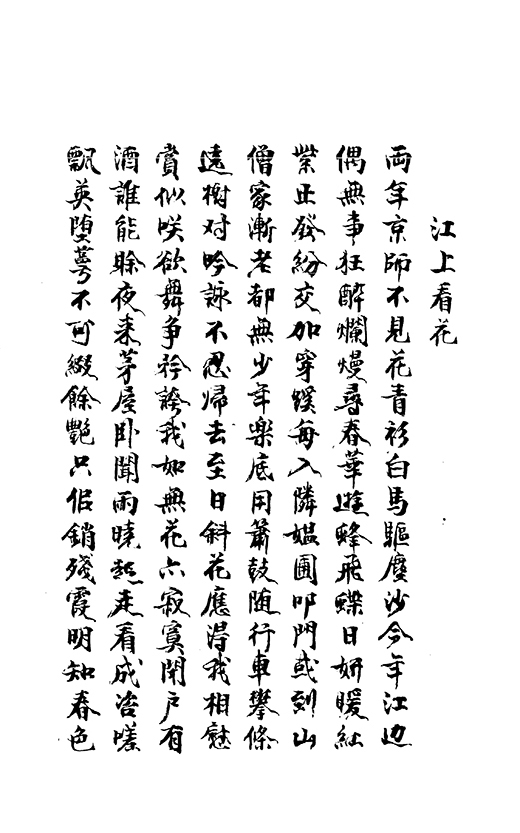 江上看花
両年京師不見花青衫白馬驅塵沙今年江边
偶無事狂醉爛熳尋春華遊蜂飛蝶日妍暖紅
紫正發紛交加穿蹊每入隣媪圃叩門或到山
僧家漸老都無少年樂底用簫鼓随行車攀條
遶樹対吟詠不忍歸去至日斜花應得我相慰
賞似咲欲舞争矜誇我如無花亦寂寞閉戶有
酒誰能賒夜来茅屋卧聞雨曉起走看成咨嗟
飄英堕萼不可綴餘艷只佀銷殘霞明知春色